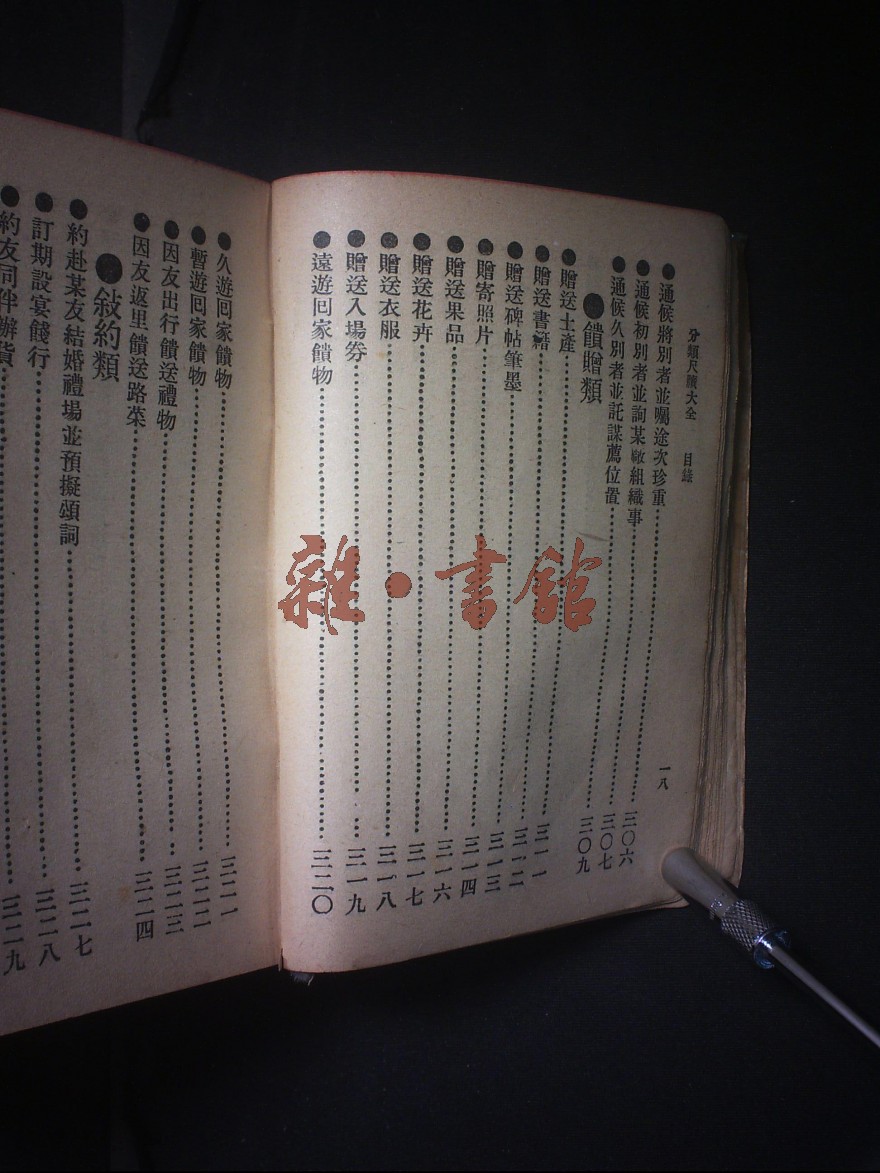 分類尺牘大全 目錄 一八
●通候將別者並囑途次珍重……三〇六
●通候初別者並詢某廠組織事……三〇七
●通候久別者並託謀薦位置……三〇九
●饋贈類
●贈送土產……三一一
●贈送書籍……三一二
●贈送碑帖筆墨……三一三
●贈寄照片……三一四
●贈送果品……三一六
●贈送花卉……三一七
●贈送衣服……三一八
●贈送入場券……三一九
●遠遊回家饋物……三二〇
●久遊回家饋物……三二一
●暫遊回家饋物……三二二
●因友出行饋送禮物……三二三
●因友返里饋送路菜……三二四
●敍約類
●約赴某友結婚禮場並預擬頌詞……三二七
●訂期設宴餞行……三二八
●約友同伴辦貨……三二九
雜·書館